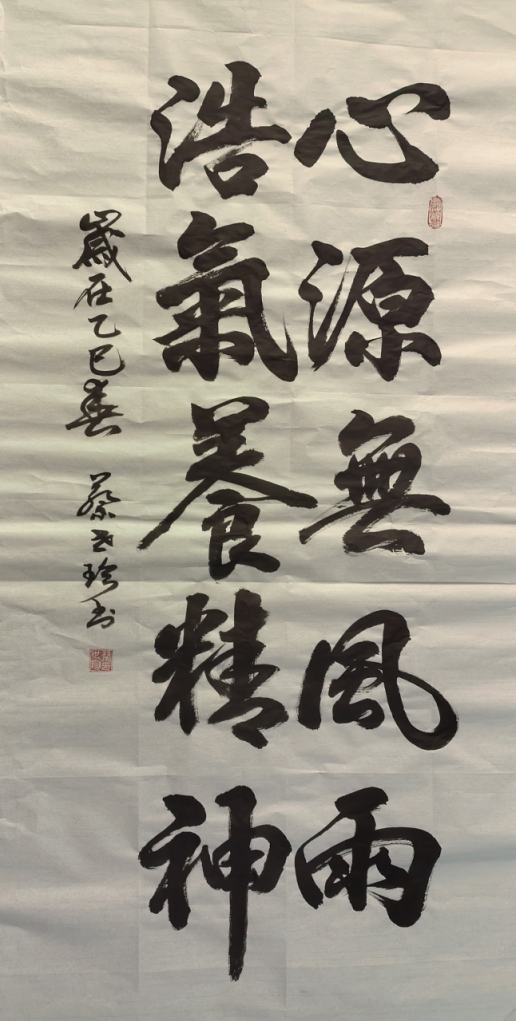 心源無風雨
浩氣養精神
歲在乙巳春 蔡世珍书